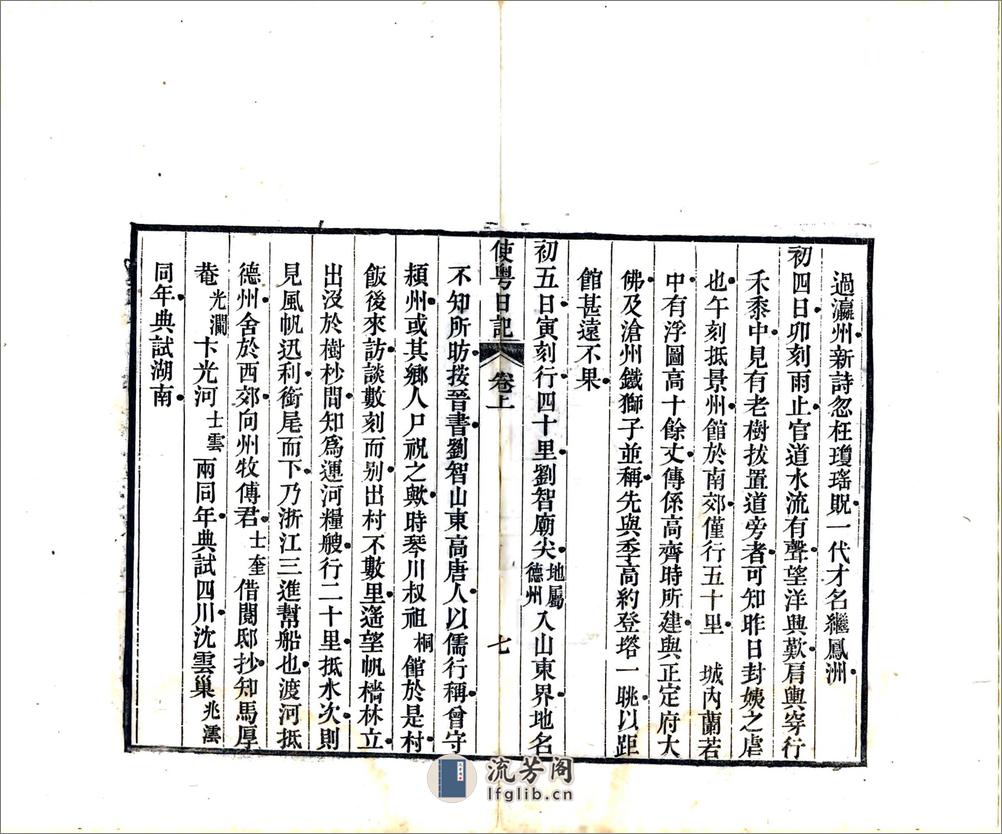 過瀛州新詩忽枉瓊瑤貺一代才名繼鳳洲
初四日卯刻雨止官道水流有聲望洋興歎肩輿穿行
禾黍中見有老樹拔置道旁者可知昨日封姨之虐
也午刻抵景州館於南郊僅行五十里　城內蘭若
中有浮圖高十餘丈傳係高齊時所建與正定府大
佛及滄州鐵獅子並稱先與季高約登塔一眺以距
館甚遠不果
初五日寅刻行四十里劉智廟尖地屬德州入山東界地名
使粵日記　卷上　七
不知所昉按晉書劉智山東高唐人以儒行稱曾守
潁州或其鄉人尸祝之歟時琴川叔祖桐館於是村
飯後來訪談數刻而別出村不數里遙望帆檣林立
出沒於樹杪間知爲運河糧艘行二十里抵水次則
見風帆迅利銜尾而下乃浙江三進幫船也渡河抵
德州舍於西郊向州牧傅君士奎借閱邸抄知馬厚
菴光瀾卞光河士雲兩同年典試四川沈雲巢兆澐
同年典試湖南
流芳阁
lfglib.cn